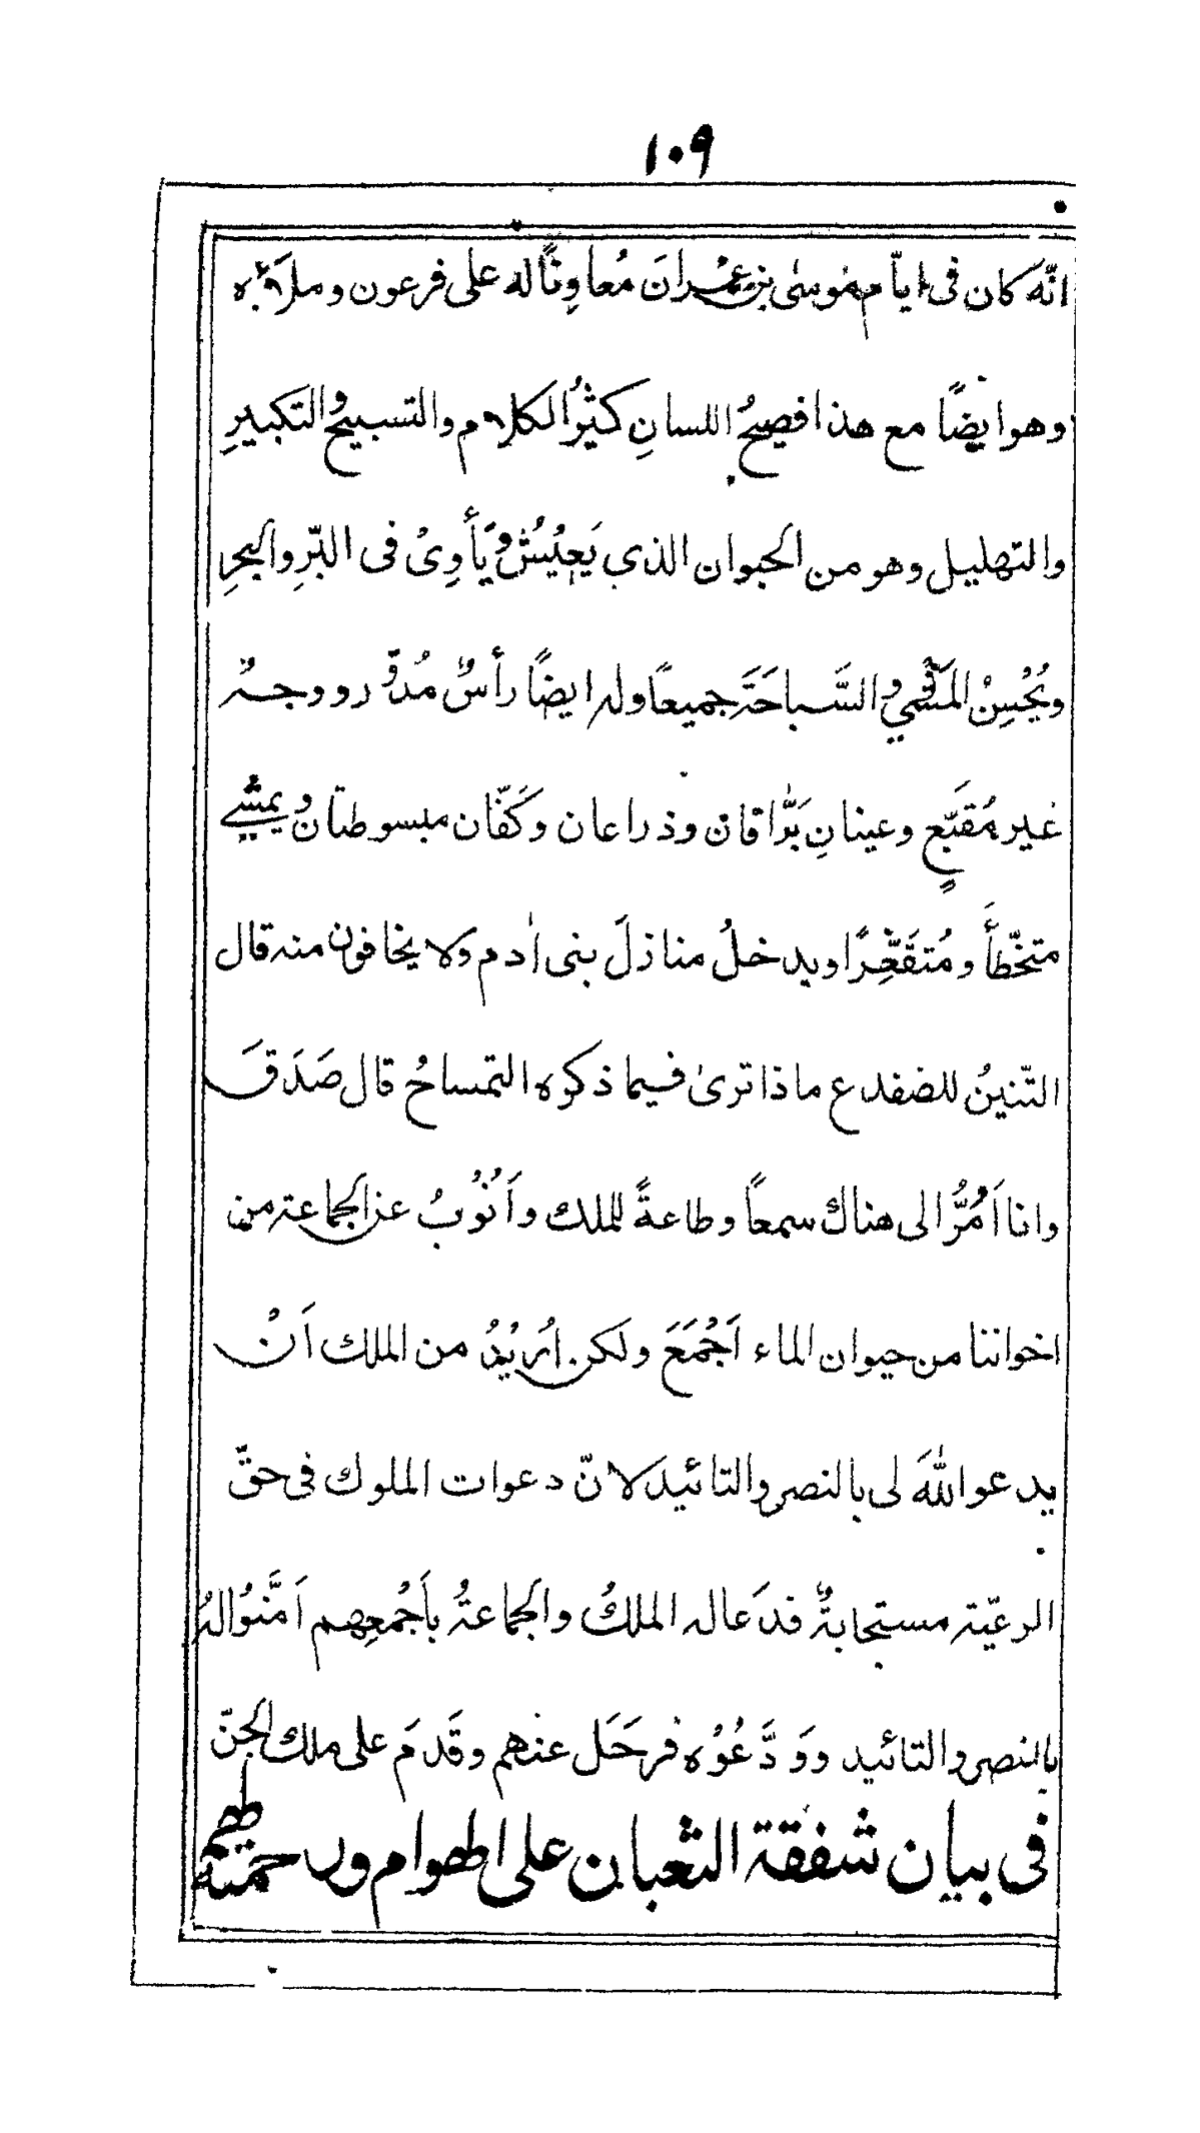 ١٠٩
انّهَ كان فى ايّام مُوسٰى بن عِمْرانَ مُعاوِنًا له على فرعون وملَائِه
وهو ايضًا مع هذا فصيحُ اللسانِ كثيْرُ الكلام والتسبيحِ والتكبيرِ
والتهليل وهو من الحيوان الذي يَعِيْشُ ويَأوِىْ فى البّرِ والبحرِ
ويُحْسِنُ المَشْيَ والسَّباحَتَہ جميعًا ولہ ايضًا رأسٌ مُدوَّر ووجہٌ
غير مُقبَّع وعينانِ بَرّاقان وذراعان وكَفّان مبسوطتان ويمشے
متخّطأً ومُتقَفِّزًا ويدخلُ منازلَ بنى اٰدم ولا يخافون منہ قال
التّنينُ للضفدع ماذا ترىٰ فيما ذكره التمساحُ قال صَدَقَ
وانا اَمُرُّ الى هناك سمعاً وطاعةً للملك واَنُوْبُ عن الجماعۃ من
اخواننا من حيوان الماء اَجْمَعَ ولكن اُرِيْدُ من الملك اَنْ
يدعو اللّٰهَ لى بالنصر والتائيد لانّ دعوات الملوك فى حقّ
الرعيّۃ مستجابۃٌ فدَعا لہ الملكُ والجماعۃُ باَجْمعِهم اَمَّنوْا لہُ
بالنصر والتائيد ووَدَّعُوْه فرحَل عنهم وقَدمَ على ملك الجنّ
فى بيان شفقۃ الثعبان على الهوام ورحمتہ لهم